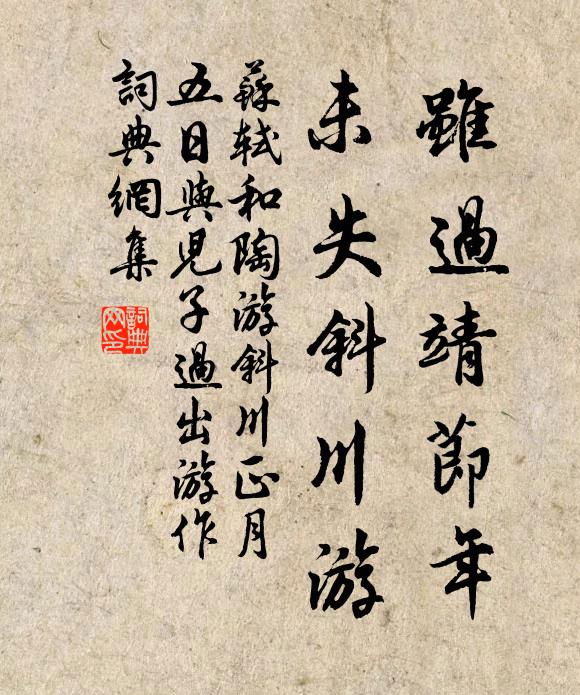 雖過靖節年
未失斜川游
蘇軾和陶游斜川正月
五日與兒子過出游作
詞典網集
詞典
网印